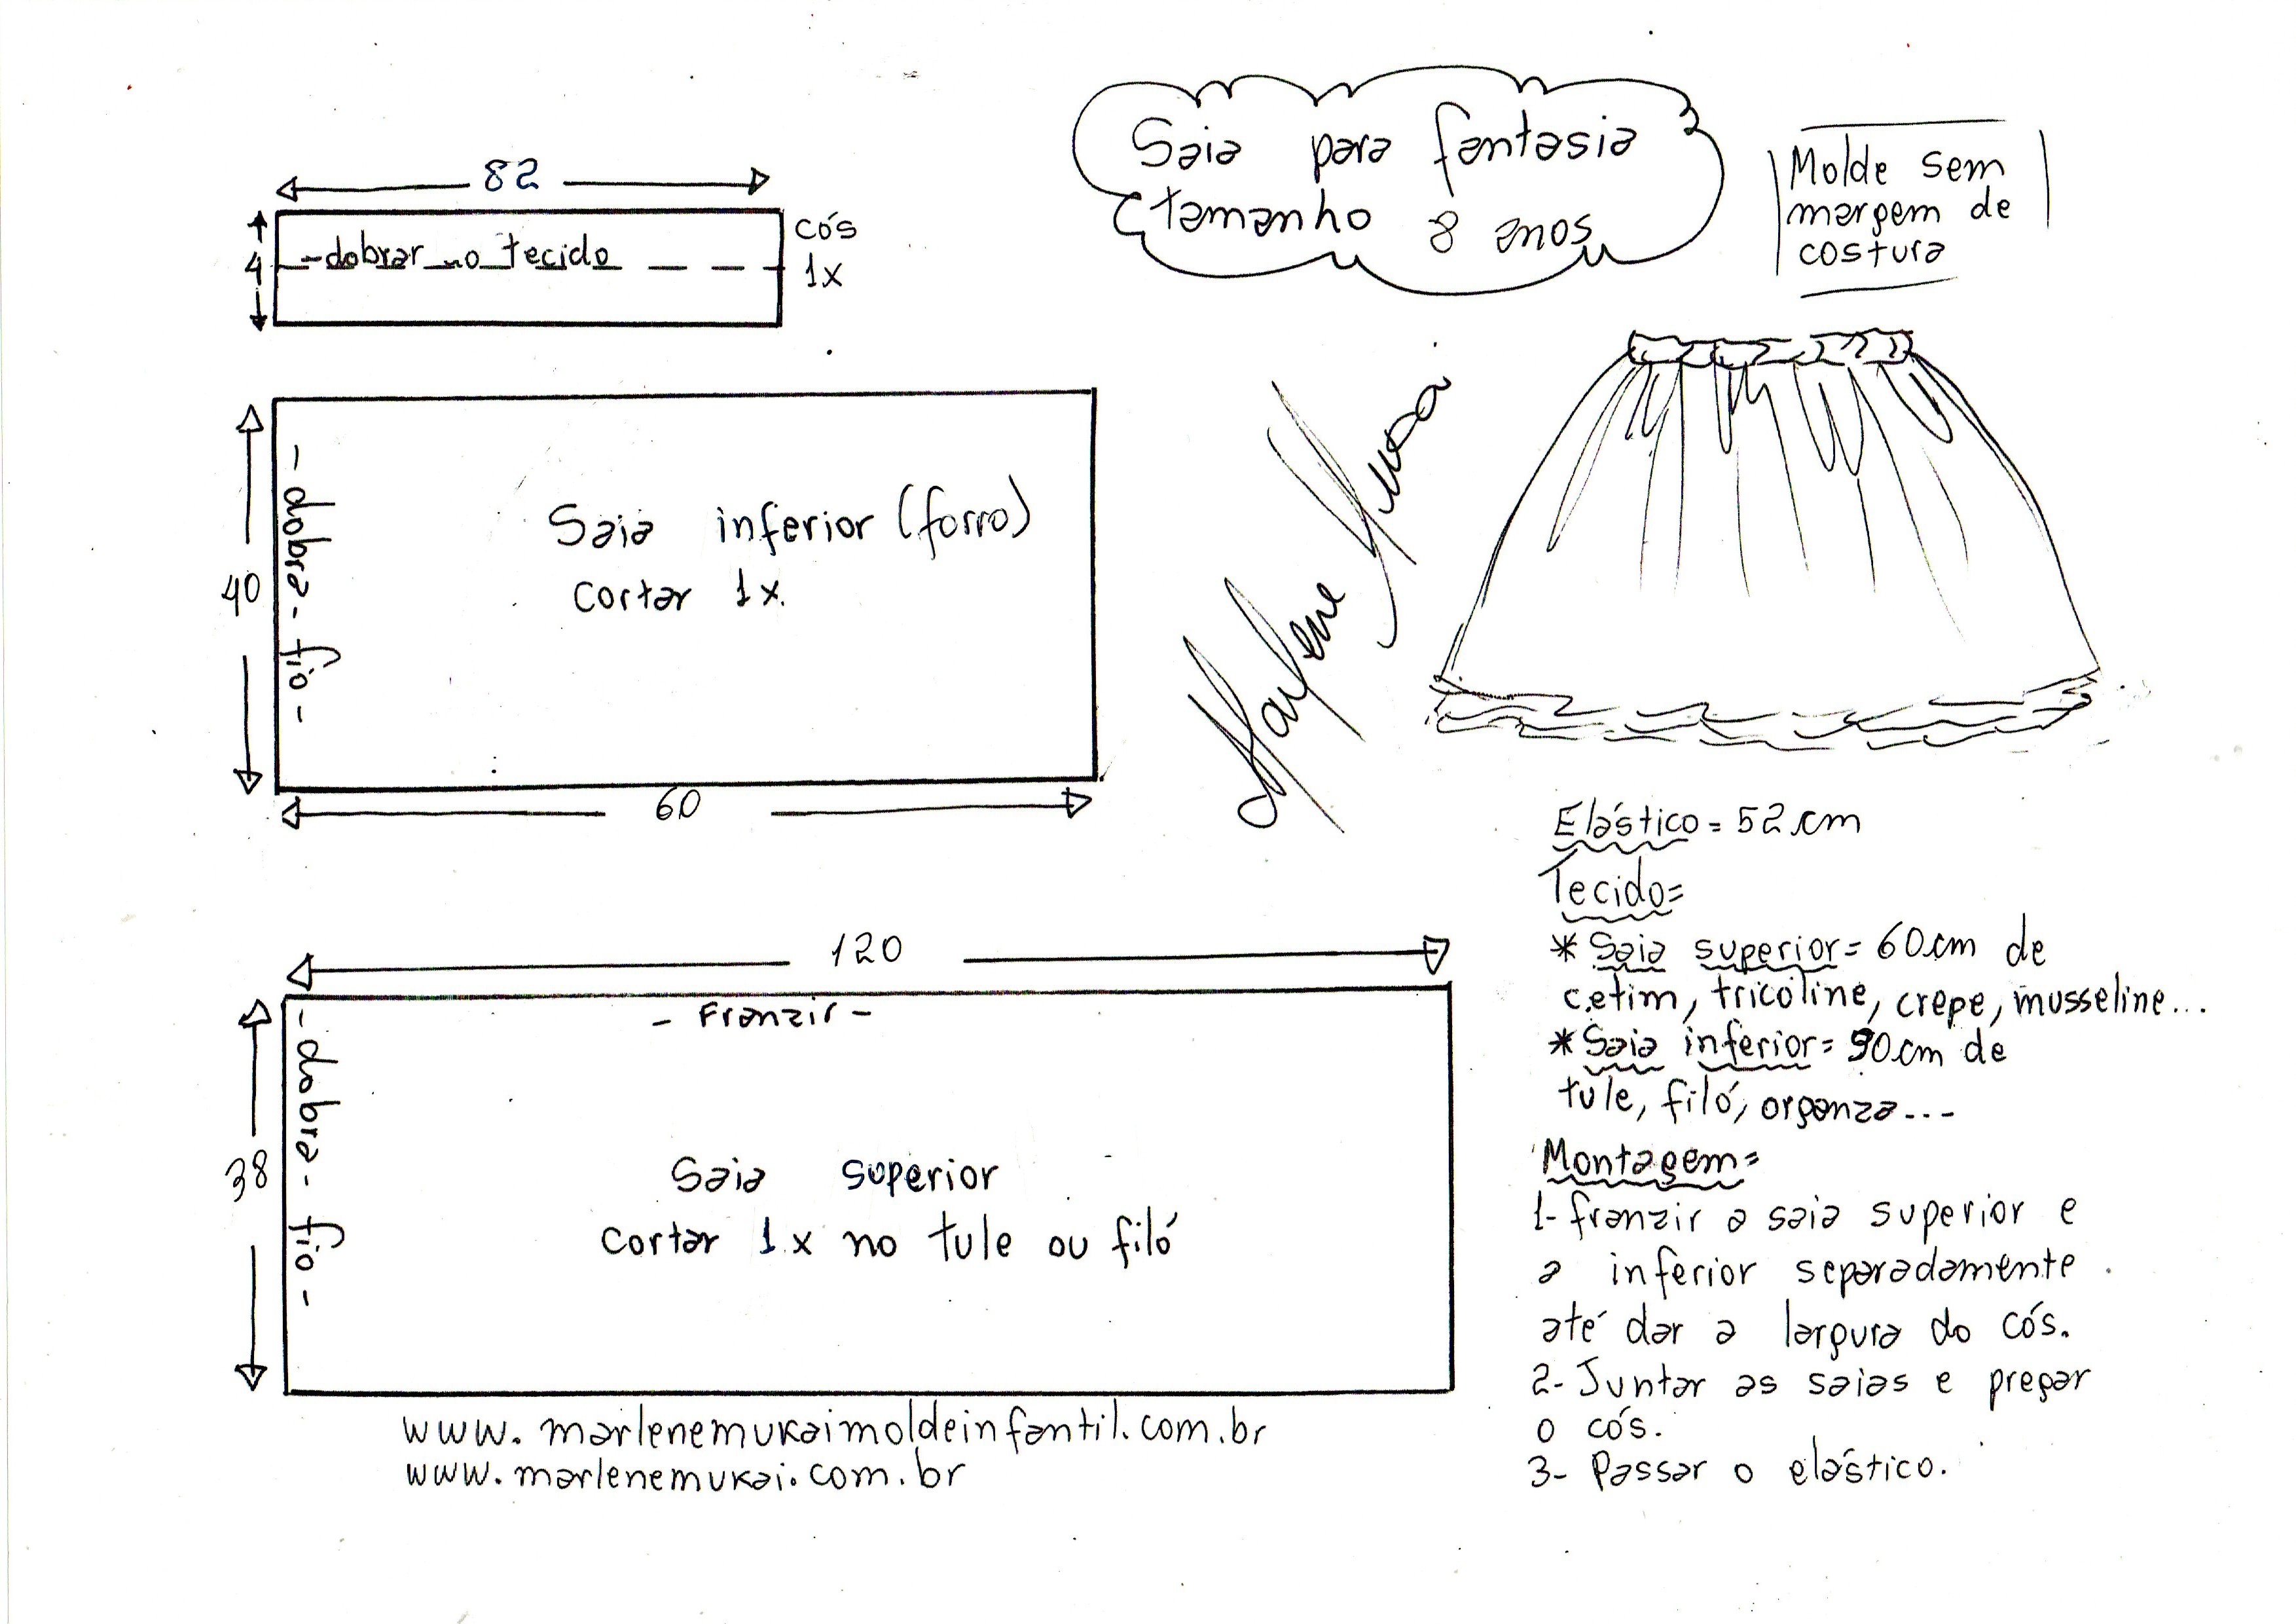 Saia para fantasia
tamanho 8 anos
Molde sem
margem de
costura
82
4
- dobrar no tecido
cós
1x
40
- dobra - fio -
Saia inferior (forro)
cortar 1x.
60
Marlene
120
- Franzir -
38
- dobra - fio -
Saia superior
cortar 1x no tule ou filó
www.marlenemukaimoldeinfantil.com.br
www.marlenemukai.com.br
Elástico = 52cm
Tecido =
* Saia superior = 60cm de
cetim, tricoline, crepe, musseline...
* Saia inferior = 90cm de
tule, filó, organza...
Montagem =
1- franzir a saia superior e
a inferior separadamente
até dar a largura do cós.
2- Juntar as saias e pregar
o cós.
3- Passar o elástico.